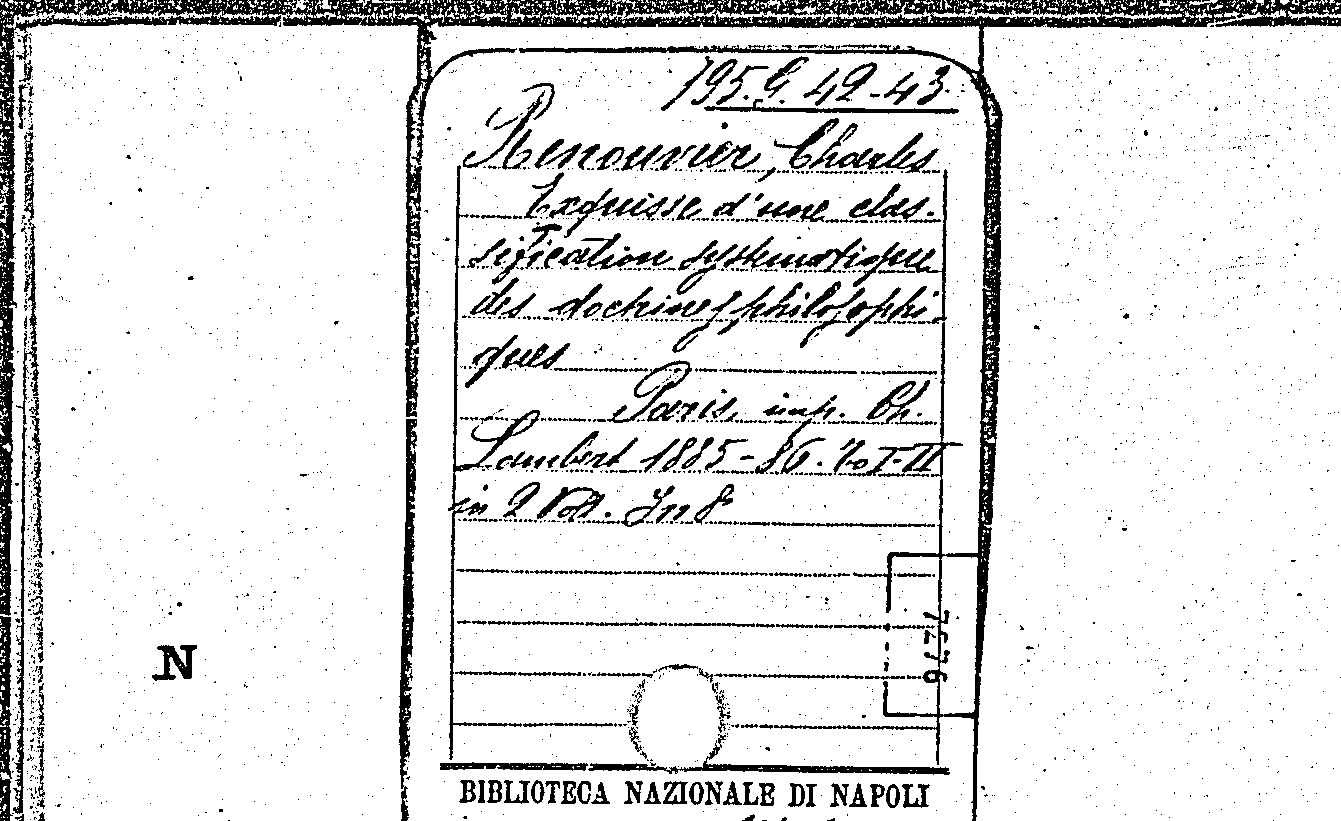 195.G. 42-43.
Renouvier, Charles
Exquisse d'une clas-
sification systematique
des doctrines philosophi-
ques
Paris, imp. Ch.
Lambert 1885-86. To I-II
in 2 Voll. In 8
N
BIBLIOTECA NAZIONALE DI NAPOLI